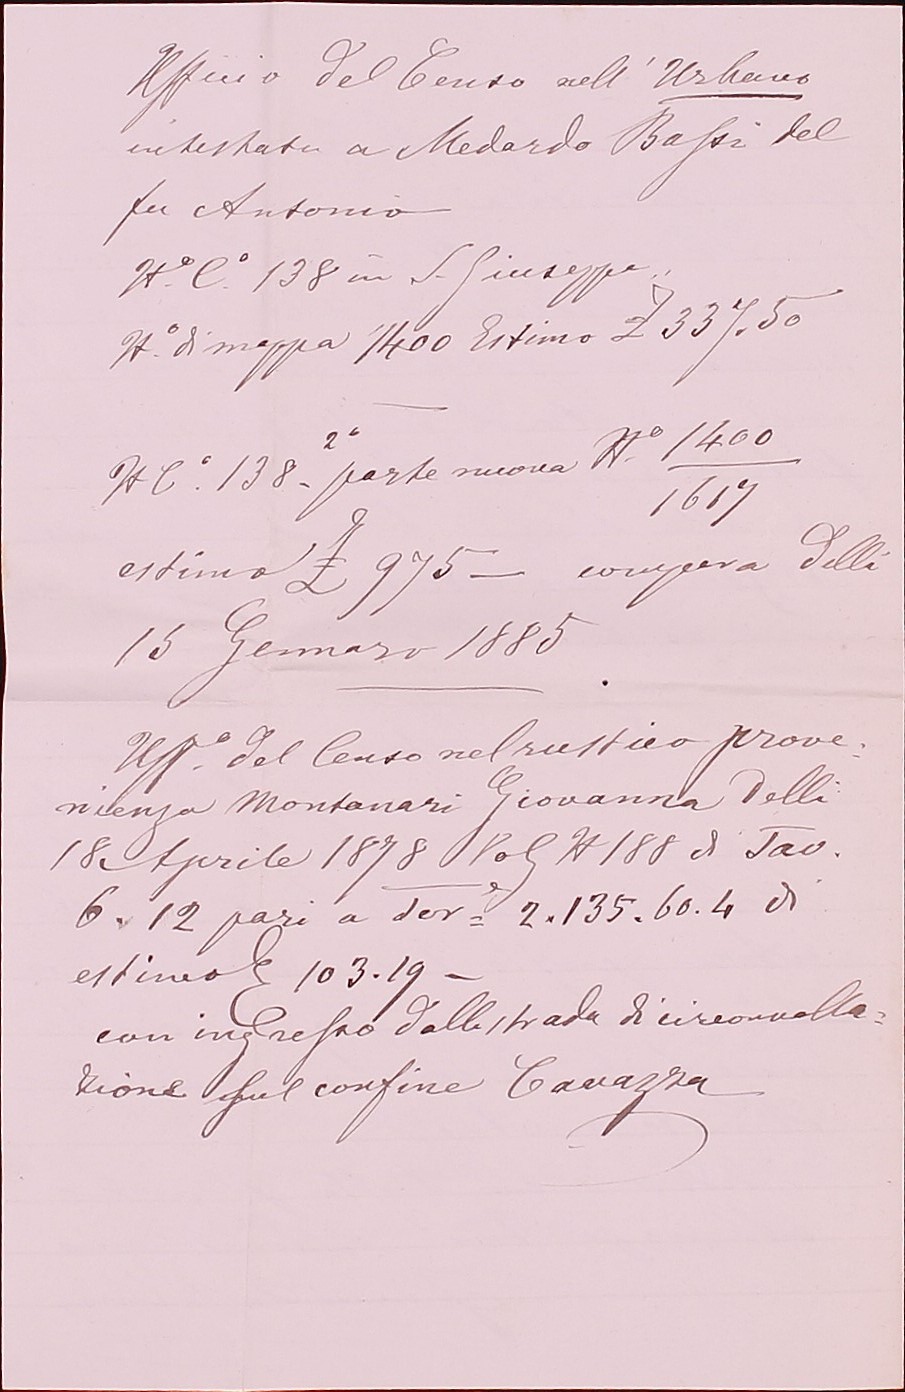 Ufficio del Censo nell'Urbano
intestata a Medardo Bassi del
fu Antonio
N.º C.º 138 in S. Giuseppe
N.º di mappa 1400 Estimo £ 337.50
N C.º 138. 2º parte nuova N.º 1400/1617
estimo £ 975 — compera delli
15 Gennaro 1885
Uffº del Censo nel rustico prove-
nienza Montanari Giovanna delli
18. Aprile 1878 Vol N 188 di Tav.
6. 12 pari a Torᵉ 2.135.60.4 di
estimo £ 103.19 —
con ingresso dalla strada di circonvalla=
zione sul confine Cavazza